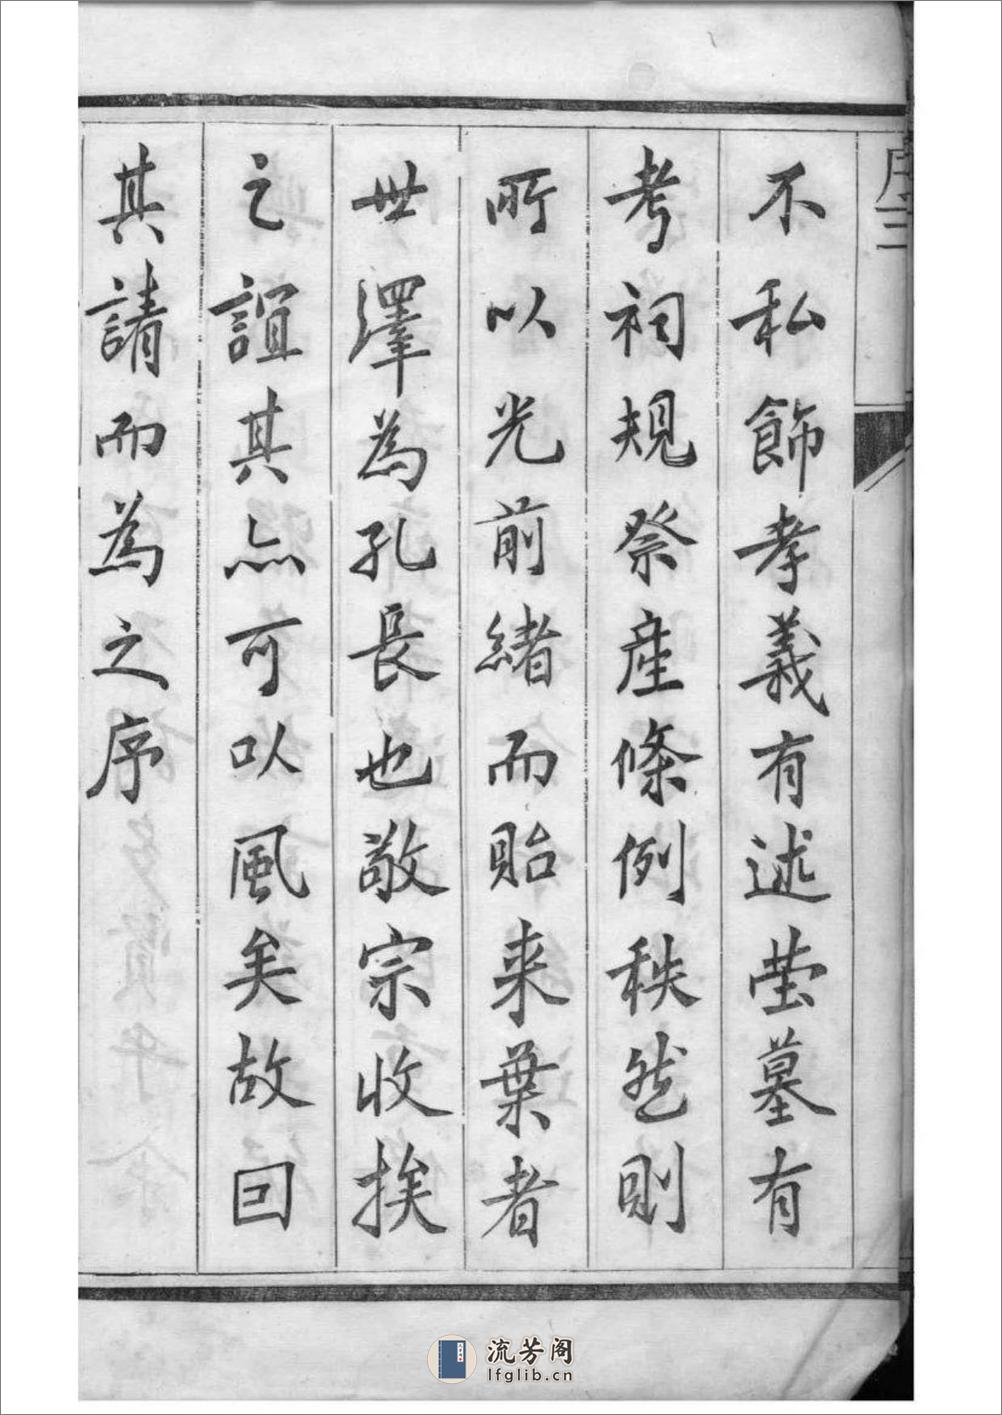 序三
不私飾孝義有述塋墓有
考祠規祭產條例秩然則
所以光前緒而貽来葉者
世澤為孔長也敬宗收族
之誼其亦可以風矣故因
其請而為之序
流芳阁
lfglib.cn